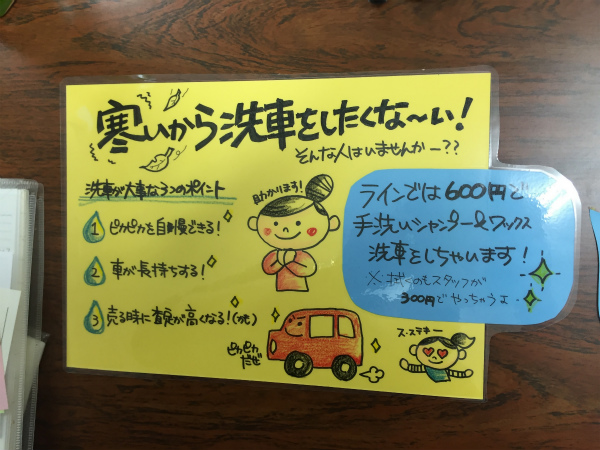 寒いから洗車をしたくな〜い!
そんな人はいませんかー??
洗車が大事な3つのポイント
1 ピカピカを自慢できる!
2 車が長持ちする!
3 売る時に査定が高くなる!(かも)
助かります!
ピカピカ
だぜ
ス・ステキー
ラインでは600円で
手洗いシャンプー&ワックス
洗車をしちゃいます!
※拭くのもスタッフが
300円でやっちゃうよ